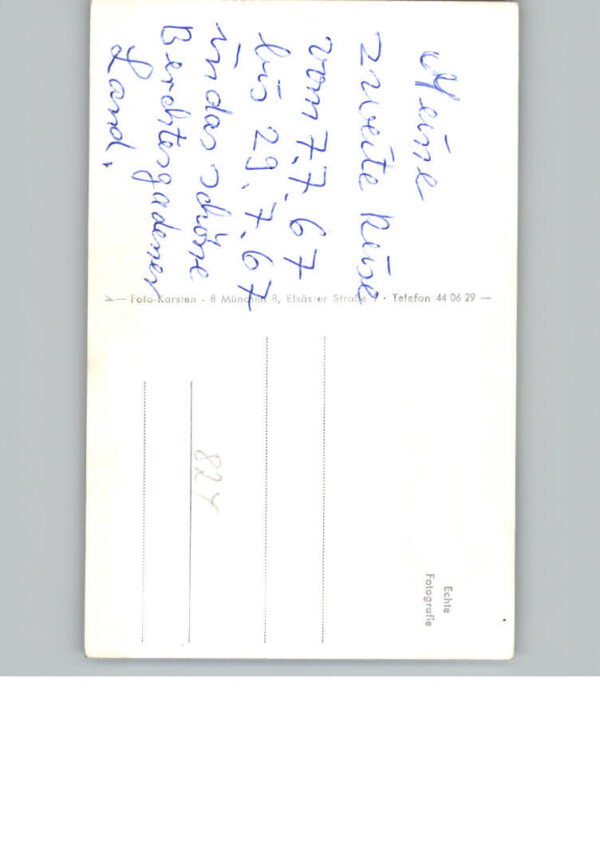 Meine
zweite Reise
vom 7.7.67
bis 29.7.67
in das schöne
Berchtesgadener
Land.
Foto-Karsten - 8 München 8, Elsässer Straße 9 · Telefon 44 06 29
Echte
Fotografie